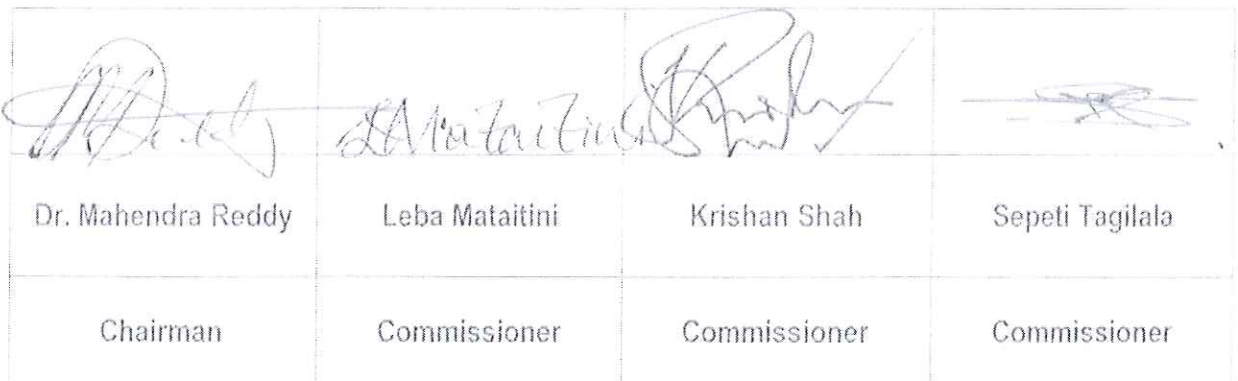 MReddy LMataitini Krishan
Dr. Mahendra Reddy Leba Mataitini Krishan Shah Sepeti Tagilala
Chairman Commissioner Commissioner Commissioner